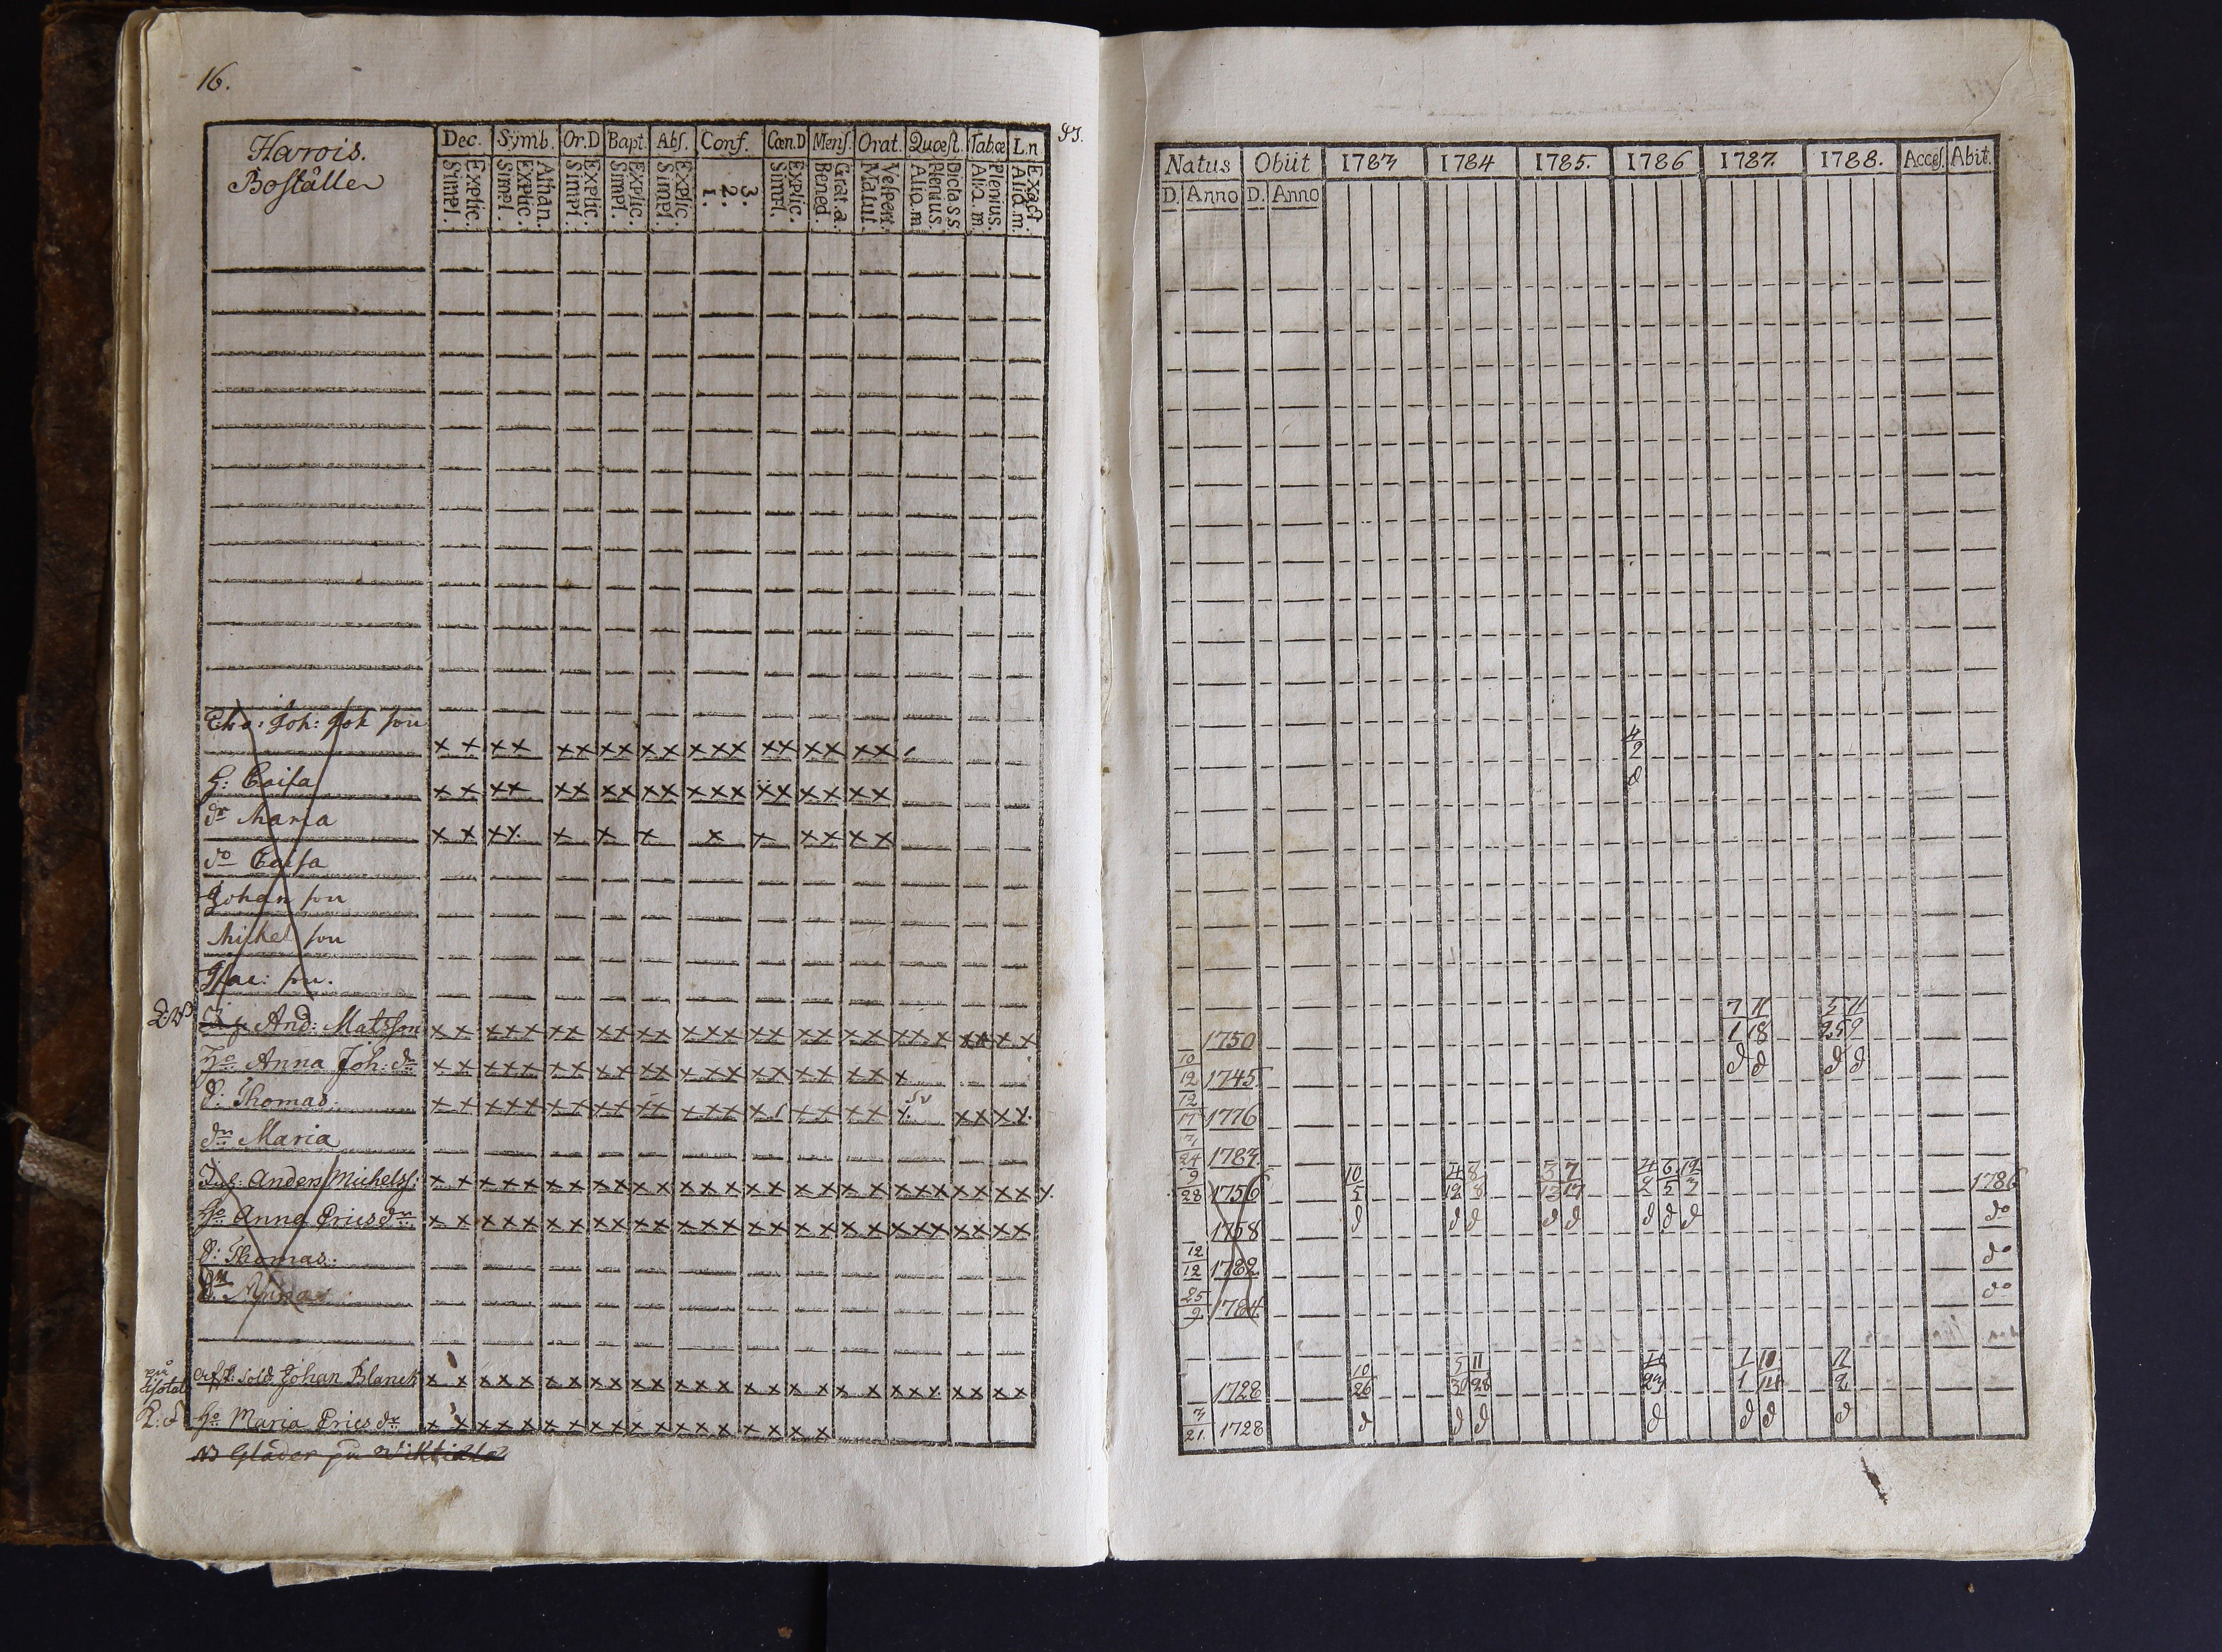 16.
Harois.
Boställe
Dec. Symb. Or.D Bapt. Abs. Conf. Cœn.D Mens. Orat. Quæst. Tab.œ L.n
Explic. Simpl. Athan. Explic. Simpl. Explic. Simpl. Explic. Simpl. Explic. Simpl. 3. 2. 1. Explic. Simpl. Grat.a. Bened. Vespert. Matut. Dicta SS. Plenius. Aliq.m Plenius. Aliq.m. Exact. Aliq.m.
Natus Obiit 1783 1784 1785. 1786 1787. 1788. Acces. Abit.
D. Anno D. Anno
Joh: Joh son x x x x x x x x x x x x x x x x x x x 4/2
h: Caisa x x x x x x x x x x x x x x x x x x x d
dr Maria x x x x x x x x x x x x x
do Caisa
Johan son
Michel son
Isac: son.
And: Matsson x x x x x x x x x x x x x x x x x x x x x x x x x x x 1750 7/1 11/18 5/25 11/9
ho Anna Joh: dr x x x x x x x x x x x x x x x x x x x x x 10/12 1745 d d d d
d: Thomas x x x x x x x x x x x x x x x x x x x x x x x x 12/17 1776
dr Maria 24 1783
Anders Michelss: x x x x x x x x x x x x x x x x x x x x x x x x x x x x 9/28 1756 10/5 4/12 8/8 3/13 7/17 4/2 6/5 12/3 1786
ho Anna Ericsdr x x x x x x x x x x x x x x x x x x x x x x x x x x x 1758 d d d d d d d d do
d: Thomas: 12/12 1782 do
dr Anna 25/9 1784 do
Sold Johan Blanck x x x x x x x x x x x x x x x x x x x x x x x x x x x 1728 10/26 5/30 11/28 1/1 10/14 11/2
ho Maria Ericsdr x x x x x x x x x x x x x x x x x x x 3/21. 1728 d d d d d d d